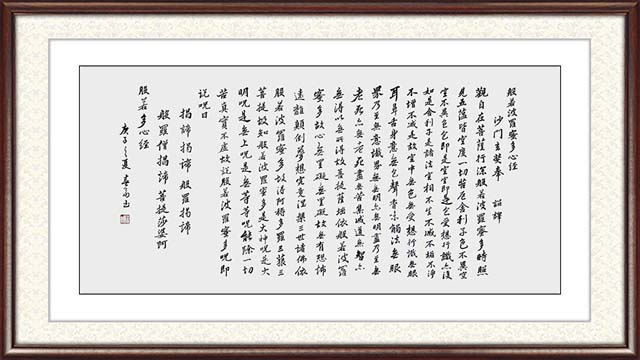 般若波羅蜜多心經
沙门玄奘奉 詔譯
觀自在菩薩行深般若波羅蜜多時照
見五蘊皆空度一切苦厄舍利子色不異空
空不異色色即是空空即是色受想行識亦復
如是舍利子是諸法空相不生不滅不垢不淨
不增不減是故空中無色無受想行識無眼
耳鼻舌身意無色聲香味觸法無眼
界乃至無意識界無無明亦無無明盡乃至無
老死亦無老死盡無苦集滅道無智亦
無得以無所得故菩提薩埵依般若波羅
蜜多故心無罣礙無罣礙故無有恐怖
遠離顛倒夢想究竟涅槃三世諸佛依
般若波羅蜜多故得阿耨多羅三藐三
菩提故知般若波羅蜜多是大神咒是大
明咒是無上咒是無等等咒能除一切
苦真實不虛故説般若波羅蜜多咒即
説咒曰
揭諦揭諦 般羅揭諦
般羅僧揭諦 菩提莎婆訶
般若多心經
庚子之夏